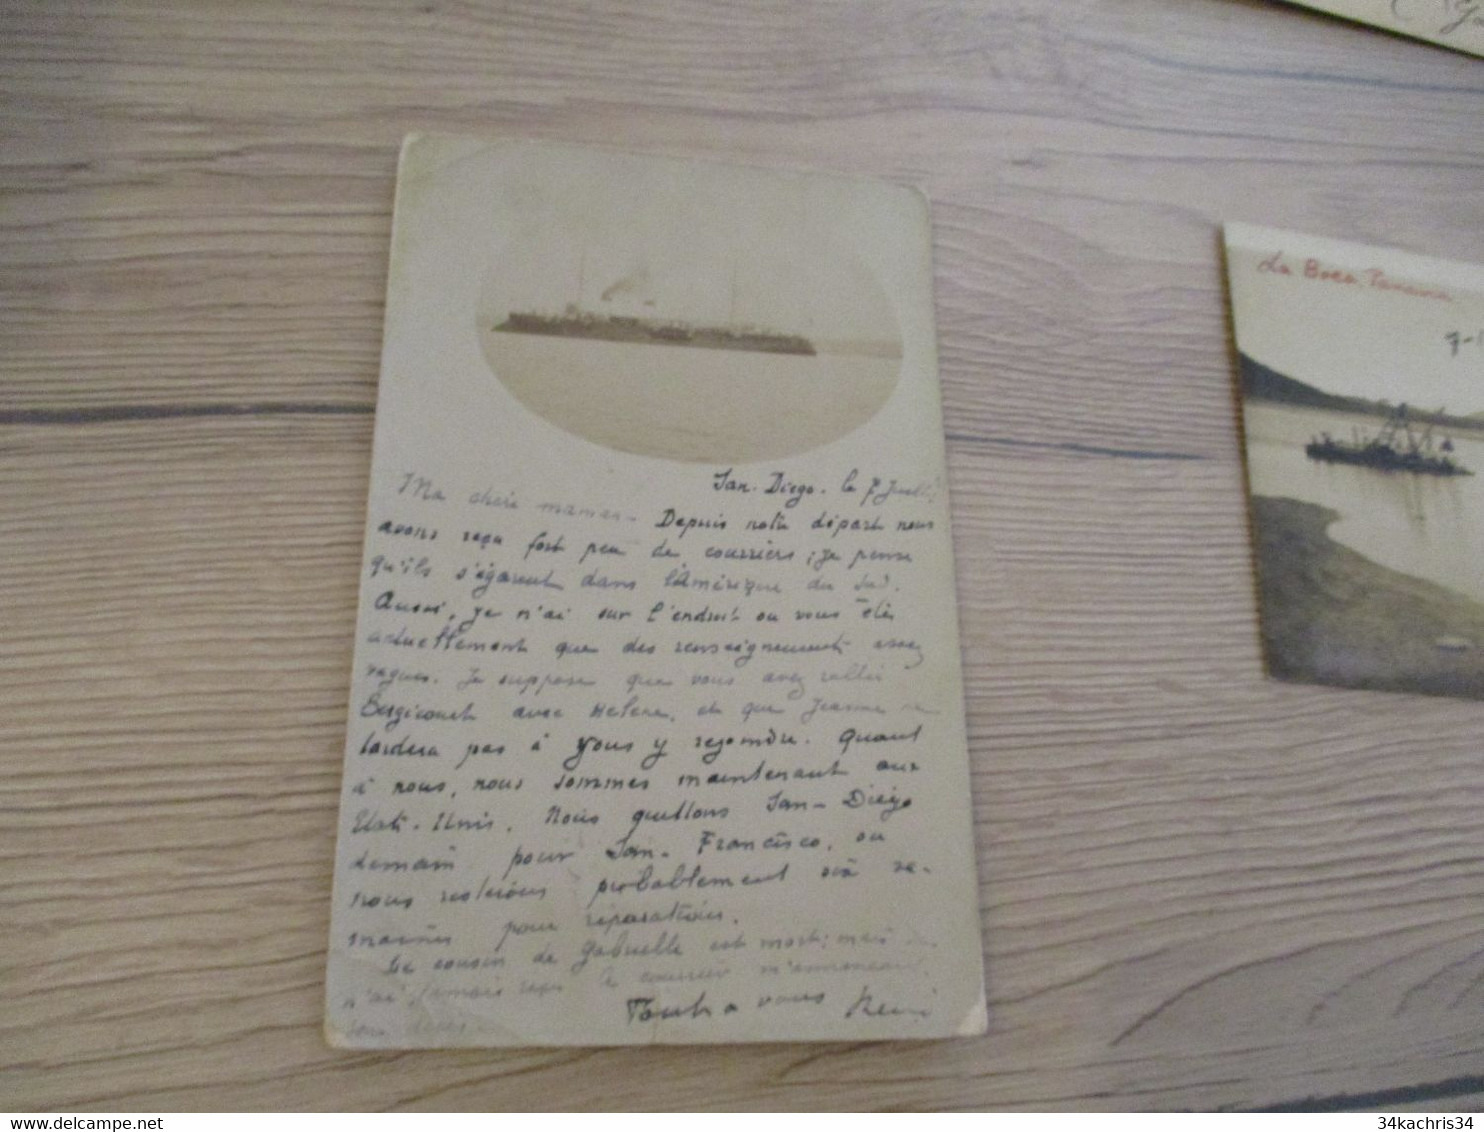 San-Diego. le 7 Juill.
Ma chère maman. Depuis notre départ nous
avons reçu fort peu de courriers; je pense
qu'ils s'égarent dans l'Amérique du Sud.
Aussi, je n'ai sur l'endroit ou vous êtes
actuellement que des renseignements assez
vagues. Je suppose que vous avez rallié
avec Helene, et que Jeanne ne
tardera pas à vous y rejoindre. Quant
à nous, nous sommes maintenant aux
Etats-Unis. Nous quittons San-Diégo
demain pour San-Francisco, ou
nous resterons probablement six se-
maines pour réparations.
Le cousin de Gabrielle est mort; mais
n'ai jamais reçu le courrier m'annonçant
son décès.
Tout à vous René
La Boca. Panama
7-1
34kachris34